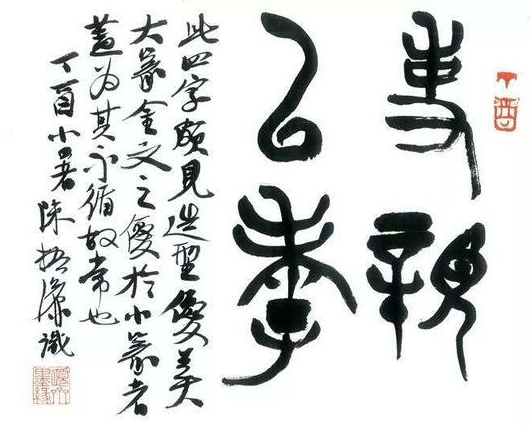 丁酉
事親
以孝
此四字頗見造型優美
大篆金文之優於小篆者
蓋為其不循故常也
丁酉小暑陳振濂識